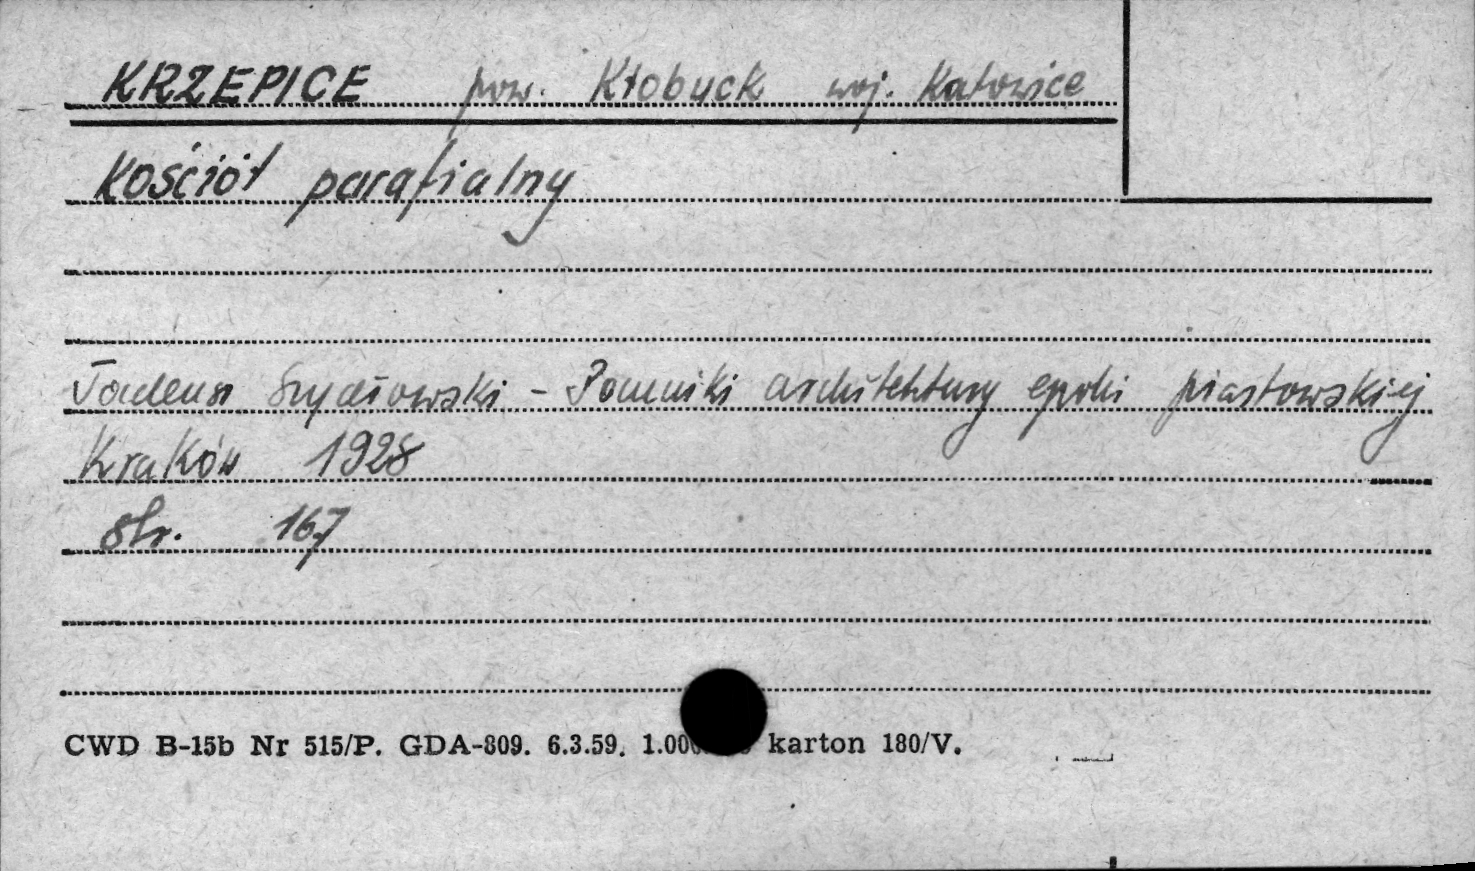 KRZEPICE pow. Kłobuck woj. Katowice
Kościół parafialny
Tadeusz Szydłowski - Pomniki architektury epoki piastowskiej
Kraków 1928
str. 167
CWD B-15b Nr 515/P. GDA-809. 6.3.59. karton 180/V.